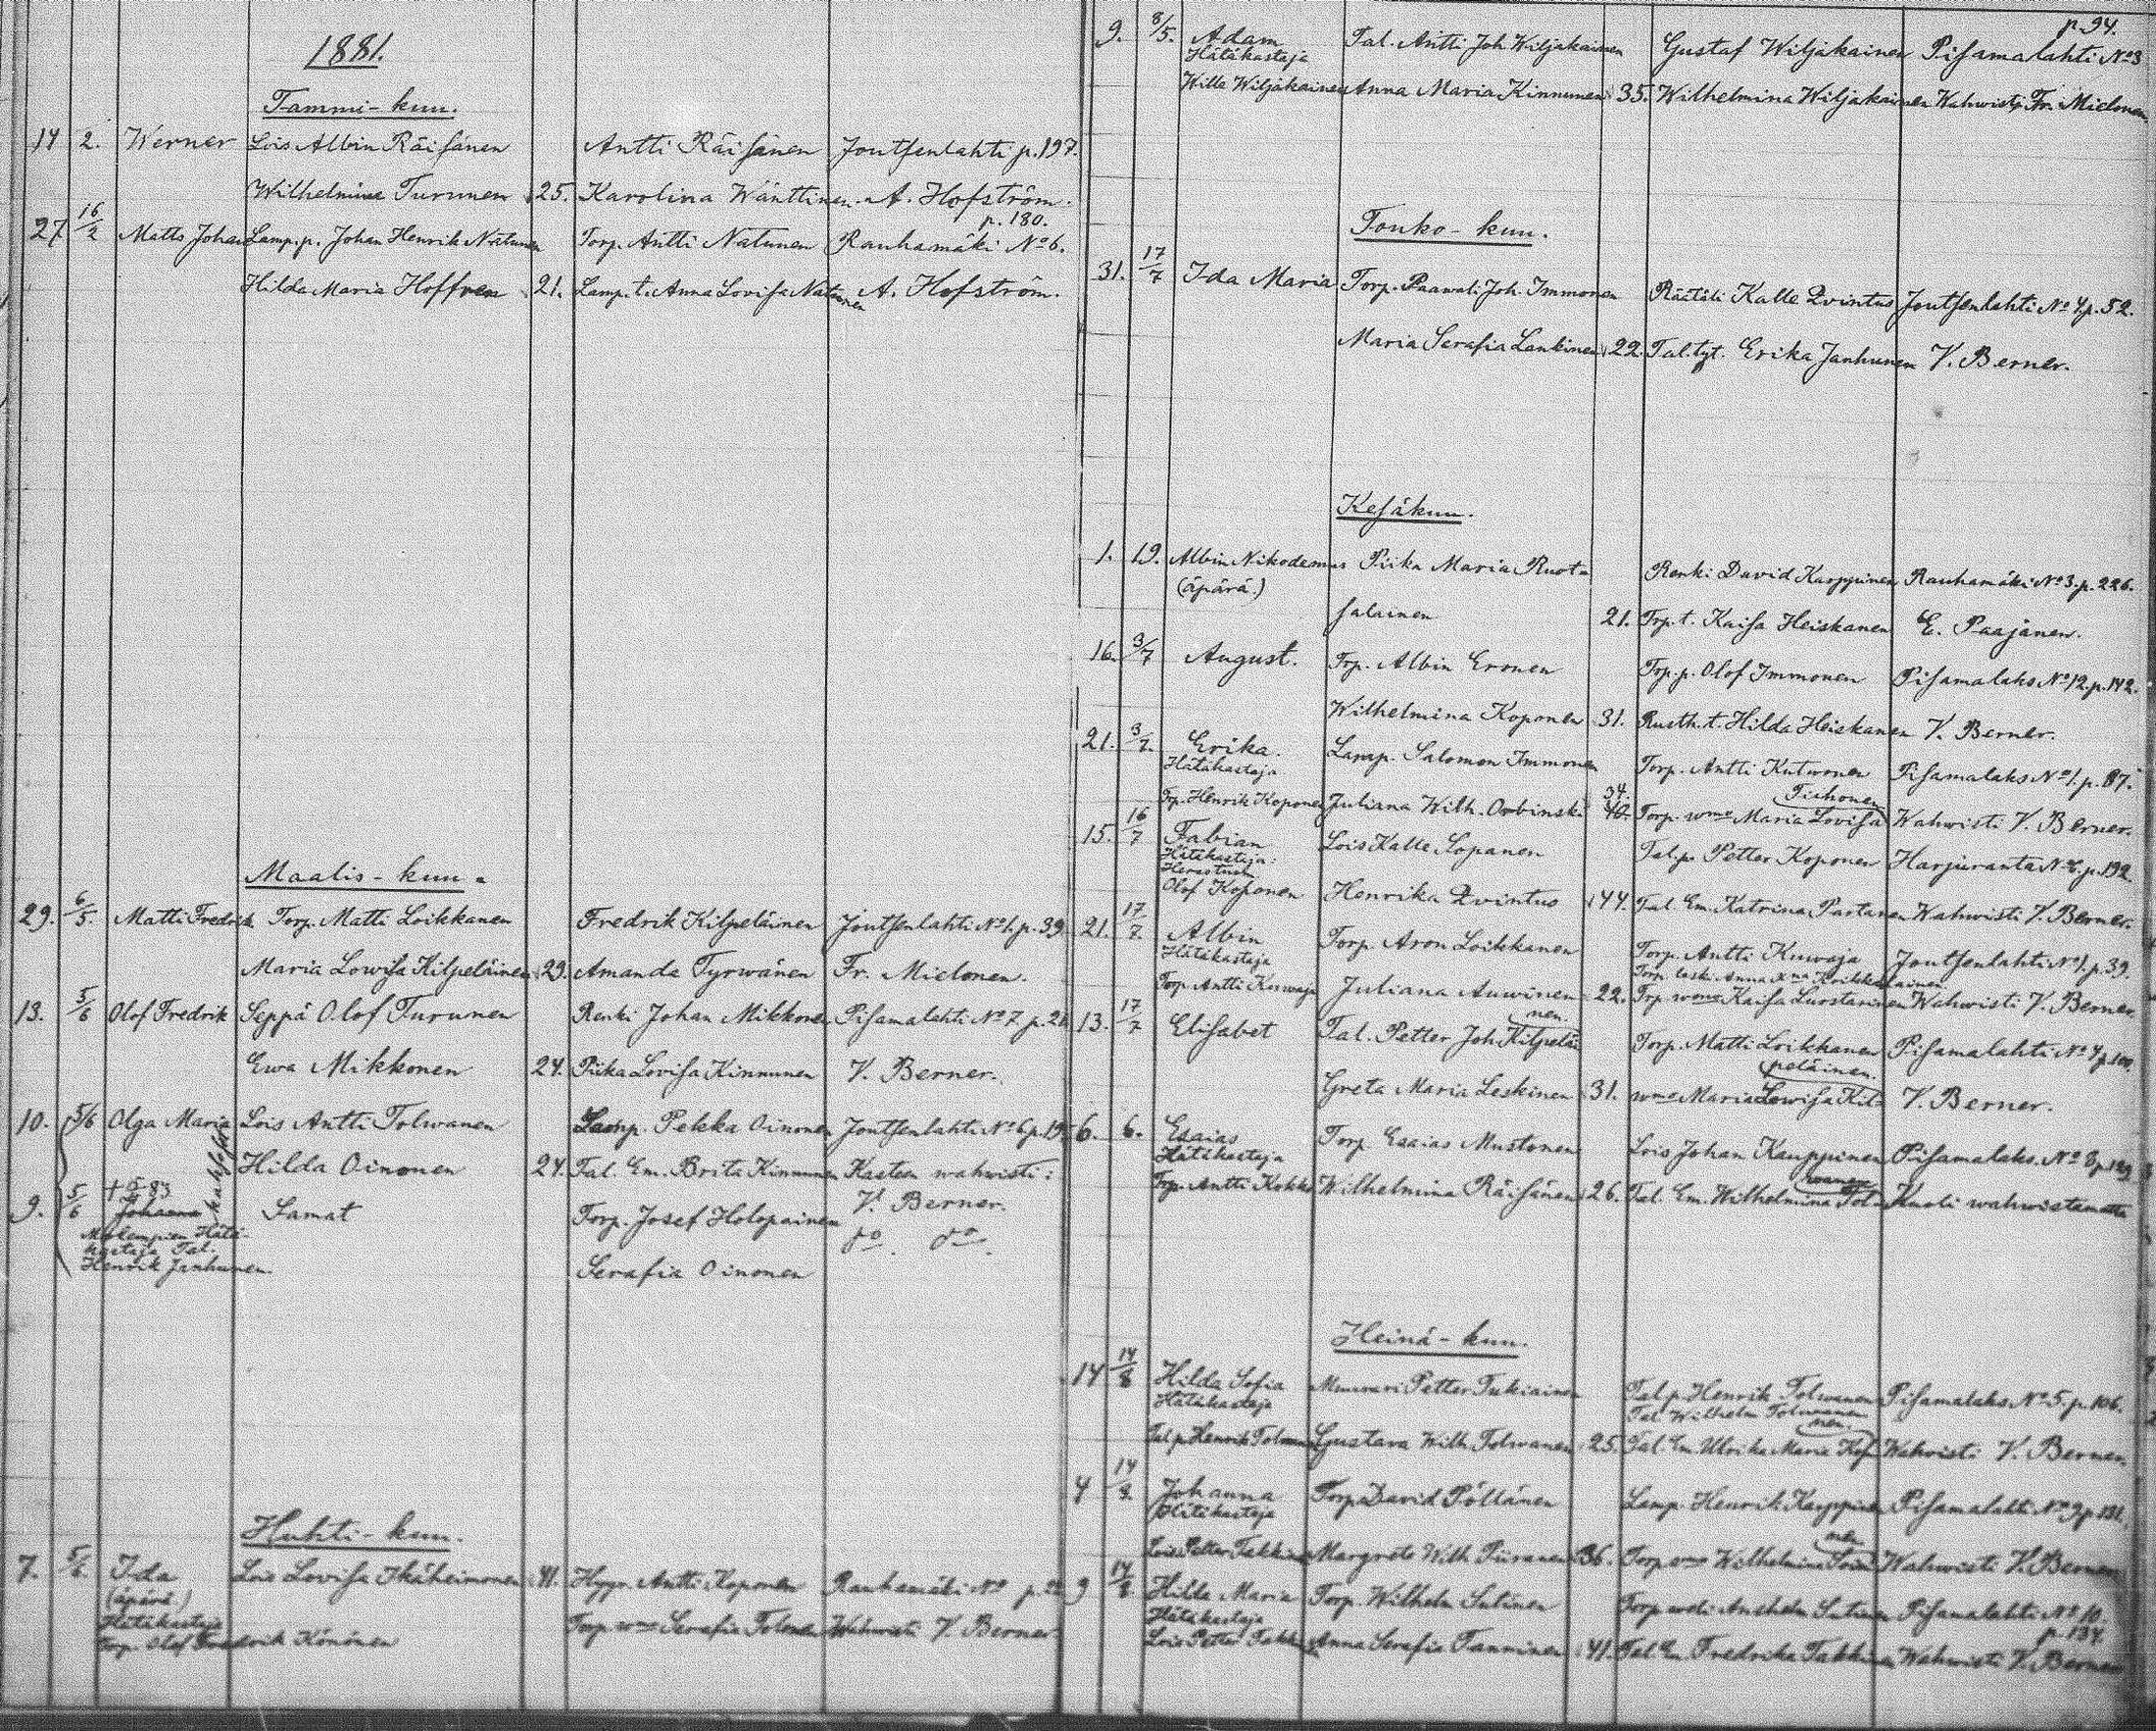 1881.
Tammi-kuu.
14 2. Werner Lois Albin Räisänen Antti Räisänen Joutsenlahti p. 197.
Wilhelmina Turunen 25. Karolina Wänttinen A. Hofström.
27 16/2 Matts Johan Lamp.p. Johan Henrik Natunen Torp. Antti Natunen Rauhamäki No 6. p. 180.
Hilda Maria Hoffren 21. Lamp.t. Anna Lovisa Natunen A. Hofström.
Maalis-kuu.
29. 6/5 Matti Fredrik Torp. Matti Loikkanen Fredrik Kilpeläinen Joutsenlahti No 1. p. 39
Maria Lowisa Kilpeläinen 29. Amanda Tyrwänen Fr. Mielonen.
13. 5/6 Olof Fredrik Seppä Olof Turunen Renki Johan Mikkonen Pisamalahti No 7 p.
Ewa Mikkonen 24. Piika Lovisa Kinnunen V. Berner.
10. 5/6 Olga Maria Lois Antti Tolwanen Lamp. Pekka Oinonen Joutsenlahti No 6 p.
Hilda Oinonen 24. Tal. Em. Brita Kinnunen Kasteen wahwisti:
kaksoset
9. 5/6 Johanna Samat Torp. Josef Holopainen V. Berner.
Molempien Hätä-
kastaja Tal. do. do.
Henrik Janhunen. Serafia Oinonen
Huhti-kuu.
7. 5/6. Ida Lois Lovisa Ikäheimonen 41. Antti Koponen Rauhamäki No p.
(äpärä)
Hätäkastaja Torp. wmo Serafia Tolonen Wahwisti V. Berner
Torp. Olof Fredrik Könönen
9. 8/5. Adam Tal. Antti Joh. Wiljakainen Gustaf Wiljakainen Pisamalahti No 3 p. 94.
Hätäkastaja
Wille Wiljakainen Anna Maria Kinnunen 35. Wilhelmina Wiljakainen Wahwisti Fr. Mielonen.
Touko-kuu.
31. 17/7 Ida Maria Torp. Paawali Joh. Immonen Räätäli Kalle Qvintus Joutsenlahti No 4. p. 52.
Maria Serafia Lankinen 22. Tal. tyt. Erika Janhunen V. Berner.
Kesäkuu.
1. 19. Albin Nikodemus Piika Maria Ruot- Renki David Karppinen Rauhamäki No 3. p. 226.
(äpärä.)
salainen 21. Trp. t. Kaisa Heiskanen E. Paajanen.
16. 3/7 August. Trp. Albin Eronen Trp. p. Olof Immonen Pisamalaks No 12. p. 142.
Wilhelmina Koponen 31. Rusth. t. Hilda Heiskanen V. Berner.
21. 3/7. Erika. Lamp. Salomon Immonen Torp. Antti Kutwonen Pisamalaks No 1. p. 87.
Hätäkastaja
Trp. Henrik Koponen Juliana Wilh. Orbinski 34. 40. Torp. wmo Maria Lovisa Tiihonen Wahwisti V. Berner.
15. 16/7 Fabian Lois Kalle Sopanen Tal. p. Petter Koponen Harjuranta No 6. p. 192
Hätäkastaja:
Herastuom.
Olof Koponen Henrika Qvintus 44. Tal. Em. Katrina Partanen Wahwisti V. Berner.
21. 17/7. Albin Torp. Aron Loikkanen Torp. Antti Kuwaja Joutsenlahti No 1. p. 39.
Hätäkastaja Torp. leski Anna
Torp. Antti Kuwaja Juliana Auwinen 22. Trp. wmo Kaisa Luostarinen Wahwisti V. Berner.
13. 17/7 Elisabet Tal. Petter Joh. Kilpeläi nen. Torp. Matti Loikkanen Pisamalahti No 4 p. 100.
Greta Maria Leskinen 31. wmo Maria Lowisa Kil- peläinen. V. Berner.
6. 6. Esaias Torp Esaias Mustonen Lois Johan Kauppinen Pisamalaks. No 8 p.
Hätäkastaja
Trp. Antti Kokki Wilhelmina Räisänen 26. Tal. Em. Wilhelmina Tol- wanen Kuoli wahwistamatta
Heinä-kuu.
14 14/8 Hilda Sofia Muurari Petter Tukiainen Tal. p. Henrik Tolwanen Pisamalaks No 5. p. 106.
Hätäkastaja Tal. Wilhelm Tolwanen
Tal. p. Henrik Tolwanen Gustava Wilh. Tolwanen 25. Tal. Em. Ulrika Maria Wahwisti V. Berner.
4 14/8. Johanna Torp. David Pöllänen Lamp. Henrik Karppinen Pisamalahti No 9 p. 131.
Hätäkastaja
Lois Petter Takkinen Margreta Wilh. Piironen 36. Torp. wmo Wilhelmina Wahwisti V. Berner
9 14/8 Hilda Maria Torp. Wilhelm Sutinen Torp. weli Anshelm Sutinen Pisamalahti No 10. p. 134.
Hätäkastaja
Lois Petter Takkinen Anna Serafia Tanninen 41. Tal. Em. Fredrika Takkinen Wahwisti V. Berner